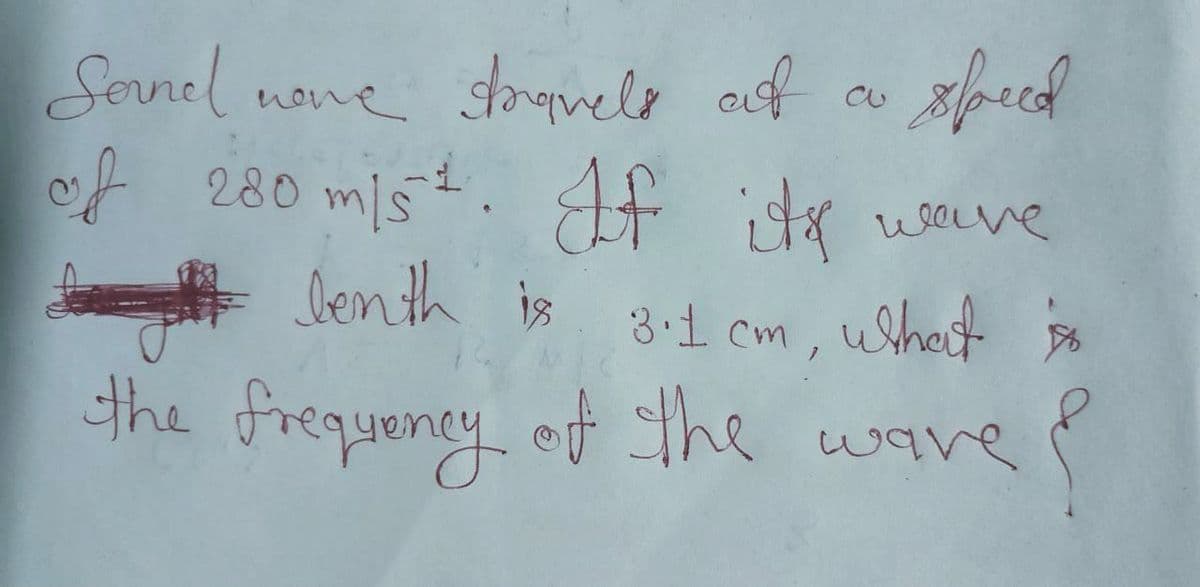 Sound wave travels at a speed
of 280 m/s⁻¹. If its wave
lenth is 3.1 cm, what is
the frequency of the wave?